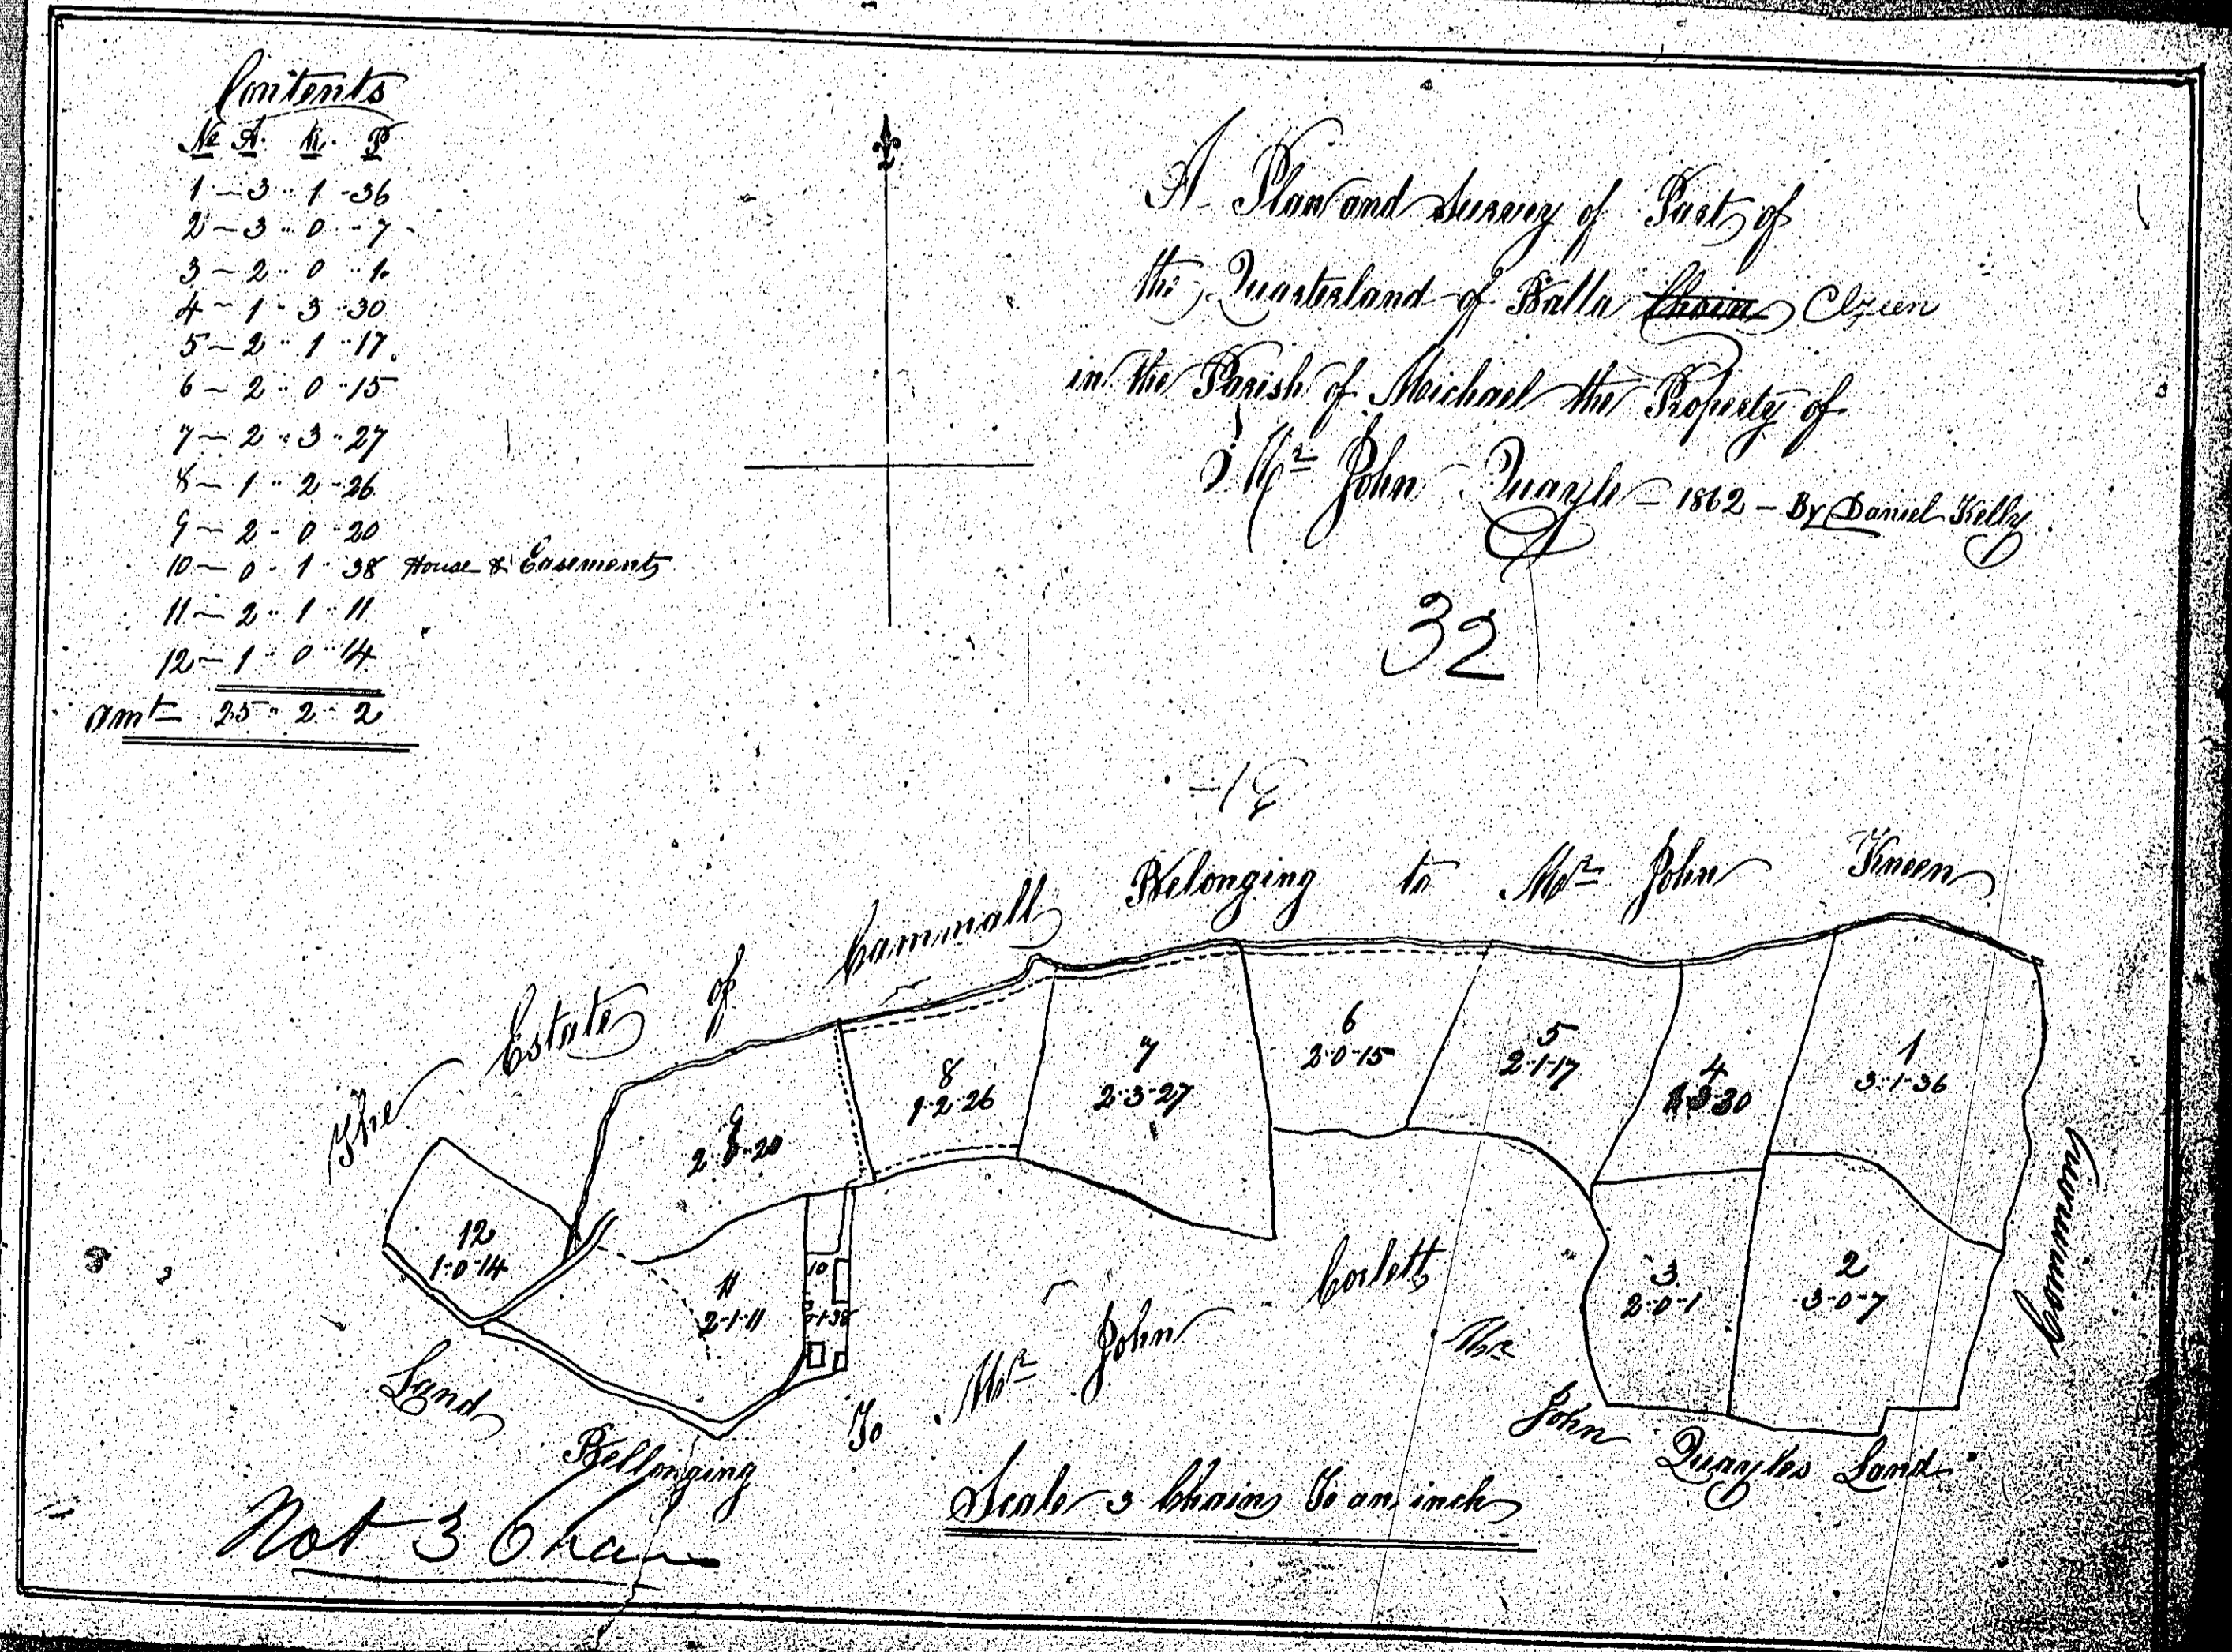 Contents
No A. R. P
1 - 3 .. 1 - 36
2 - 3 .. 0 .. 7
3 - 2 .. 0 .. 1
4 - 1 .. 3 .. 30
5 - 2 .. 1 .. 17
6 - 2 .. 0 .. 15
7 - 2 .. 3 .. 27
8 - 1 .. 2 - 26
9 - 2 - 0 .. 20
10 - 0 - 1 .. 38 House & Easements
11 - 2 .. 1 .. 11
12 - 1 .. 0 .. 14
amt 25 .. 2 .. 2
A Plan and Survey of Part of
the Quarterland of Balla Chain
in the Parish of Michael the Property of
Mr John Quayle - 1862 - By Daniel Kelly
32
The Estate of Cammall Belonging to Mr John Kneen
12
1-0-14
9
2-0-20
8
1-2-26
7
2-3-27
6
2-0-15
5
2-1-17
4
1-3-30
1
3-1-36
11
2-1-11
10
0-1-38
3
2-0-1
2
3-0-7
Land Bellonging To Mr John Corlett
Mr John Quayles Land
Not 3 Chain
Scale 3 Chains To an inch